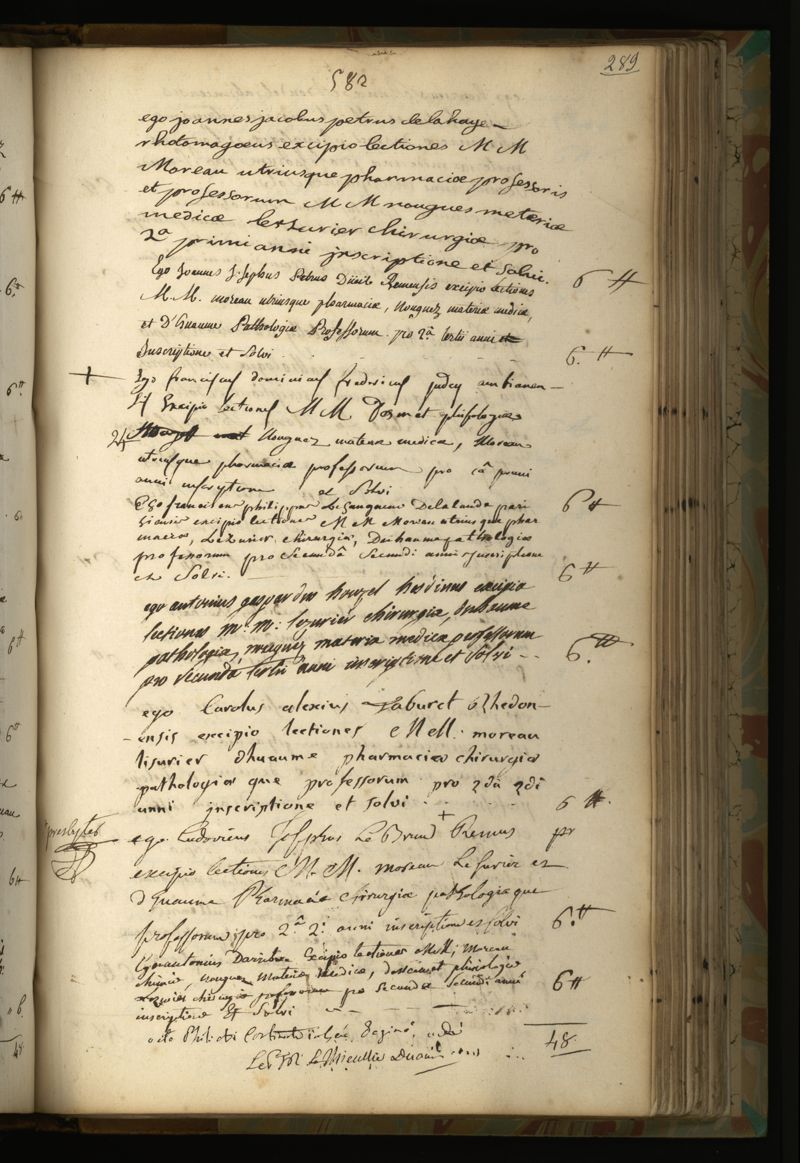 289
582
ego joannes jacobus petrus delahaye
rhotomagoeus excipio lectiones M M
Moreau utriusque pharmaciæ professoris
et professorum M M nougues materiæ
medicæ lesurier chirurgiæ pro
2a primi anni inscriptione et solvi. 6 ₶
Ego Joannes Josephus Petrus Remensis excipio lectiones
M. M. moreau utriusque pharmaciæ, nouguez materiæ medicæ,
et D'huaume Pathologiæ Professorum pro 2a tertii anni
Inscriptione et Solvi 6. ₶
+ Ego franciscus dominicus fredericus judcy ambianen-
sis Excipio lectiones M M Dosmet phisologiæ
24 Nouguez materiæ medicæ, Moreau
utriusque pharmaciæ professorum pro 2a primi
anni inscriptione et Solvi 6 ₶
Ego franciscus philippus Delalande pari
siensis excipio lectiones M M Moreau utriusque phar
maciæ, Lezurier chirurgiæ, Duhaume pathologiæ
professorum pro secundâ secundi anni inscriptione
et Solvi. 6 ₶
ego antonius gaspardus houzel hesdinus excipio
lectiones m. m. lezurier chirurgiæ, duhaume
pathologiæ, nuguez materia medica professorum
pro secunda tertii anni inscriptione et solvi 6. ₶
ego Carolus alexius Laburet Rhedon-
-ensis excipio lectiones M M. moreau
lisurier dhuaume pharmaciæ chirurgiæ
pathologiæ que professorum pro 2dâ 2di
anni inscriptione et solvi 6 ₶.
presbyter ego Ludovicus Josephus Le Brun + pr
excipio lectiones M. M. moreau Lesurier et
dhuaume Pharmaciæ chirurgiæ pathologiæ que
professorum pro 2.a 2.i anni inscriptione et solvi 6. ₶
Ego antonius Excipio lectiones M M, Moreau
chimiæ, nouguez materiæ medicæ, phisiologiæ
Lezurier chirurgiæ professorum pro secunda secundi anni
inscriptione Et Solvi 6 ₶
octo Philiatri 48